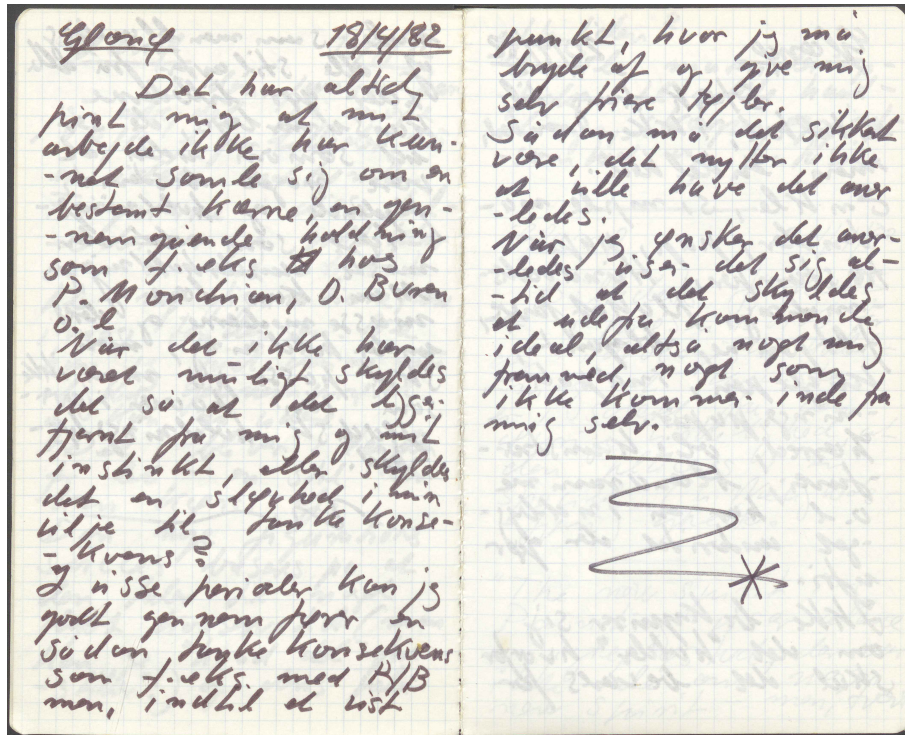 18/4/82
Det har altid
pint mig at mit
arbejde ikke har kun-
-net samle sig om en
bestemt kærne, en gen-
-nemgående holdning
som f.eks hos
P. Mondrian, D. Buren
o.l
Når det ikke har
været muligt skyldes
det så at det ligger
fjernt fra mig og mit
instinkt, eller skyldes
det en sløvhed i min
vilje til tanke konse-
-kvens?
I visse perioder kan jeg
godt gennem føre en
sådan tanke konsekvens
som f.eks. med R/B
men, indtil et vist
punkt, hvor jeg må
bryde af og give mig
selv friere tøjler.
Sådan må det sikkert
være, det nytter ikke
at ville have det ander
-ledes.
Når jeg ønsker det ander-
-ledes viser det sig al-
-tid at det skyldes
et udefra kommende
ideal, altså noget mig
fremmed, noget som
ikke kommer inde fra
mig selv.